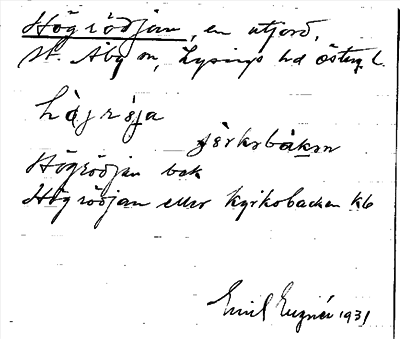 Högrödjan, en utjord,
V. Åby sn, Lysings hd Östergl.
hògrö̀ja
jèrkobàkan
Högrödjan bok
Högrödjan eller kyrkobacken kb
Emil 1931